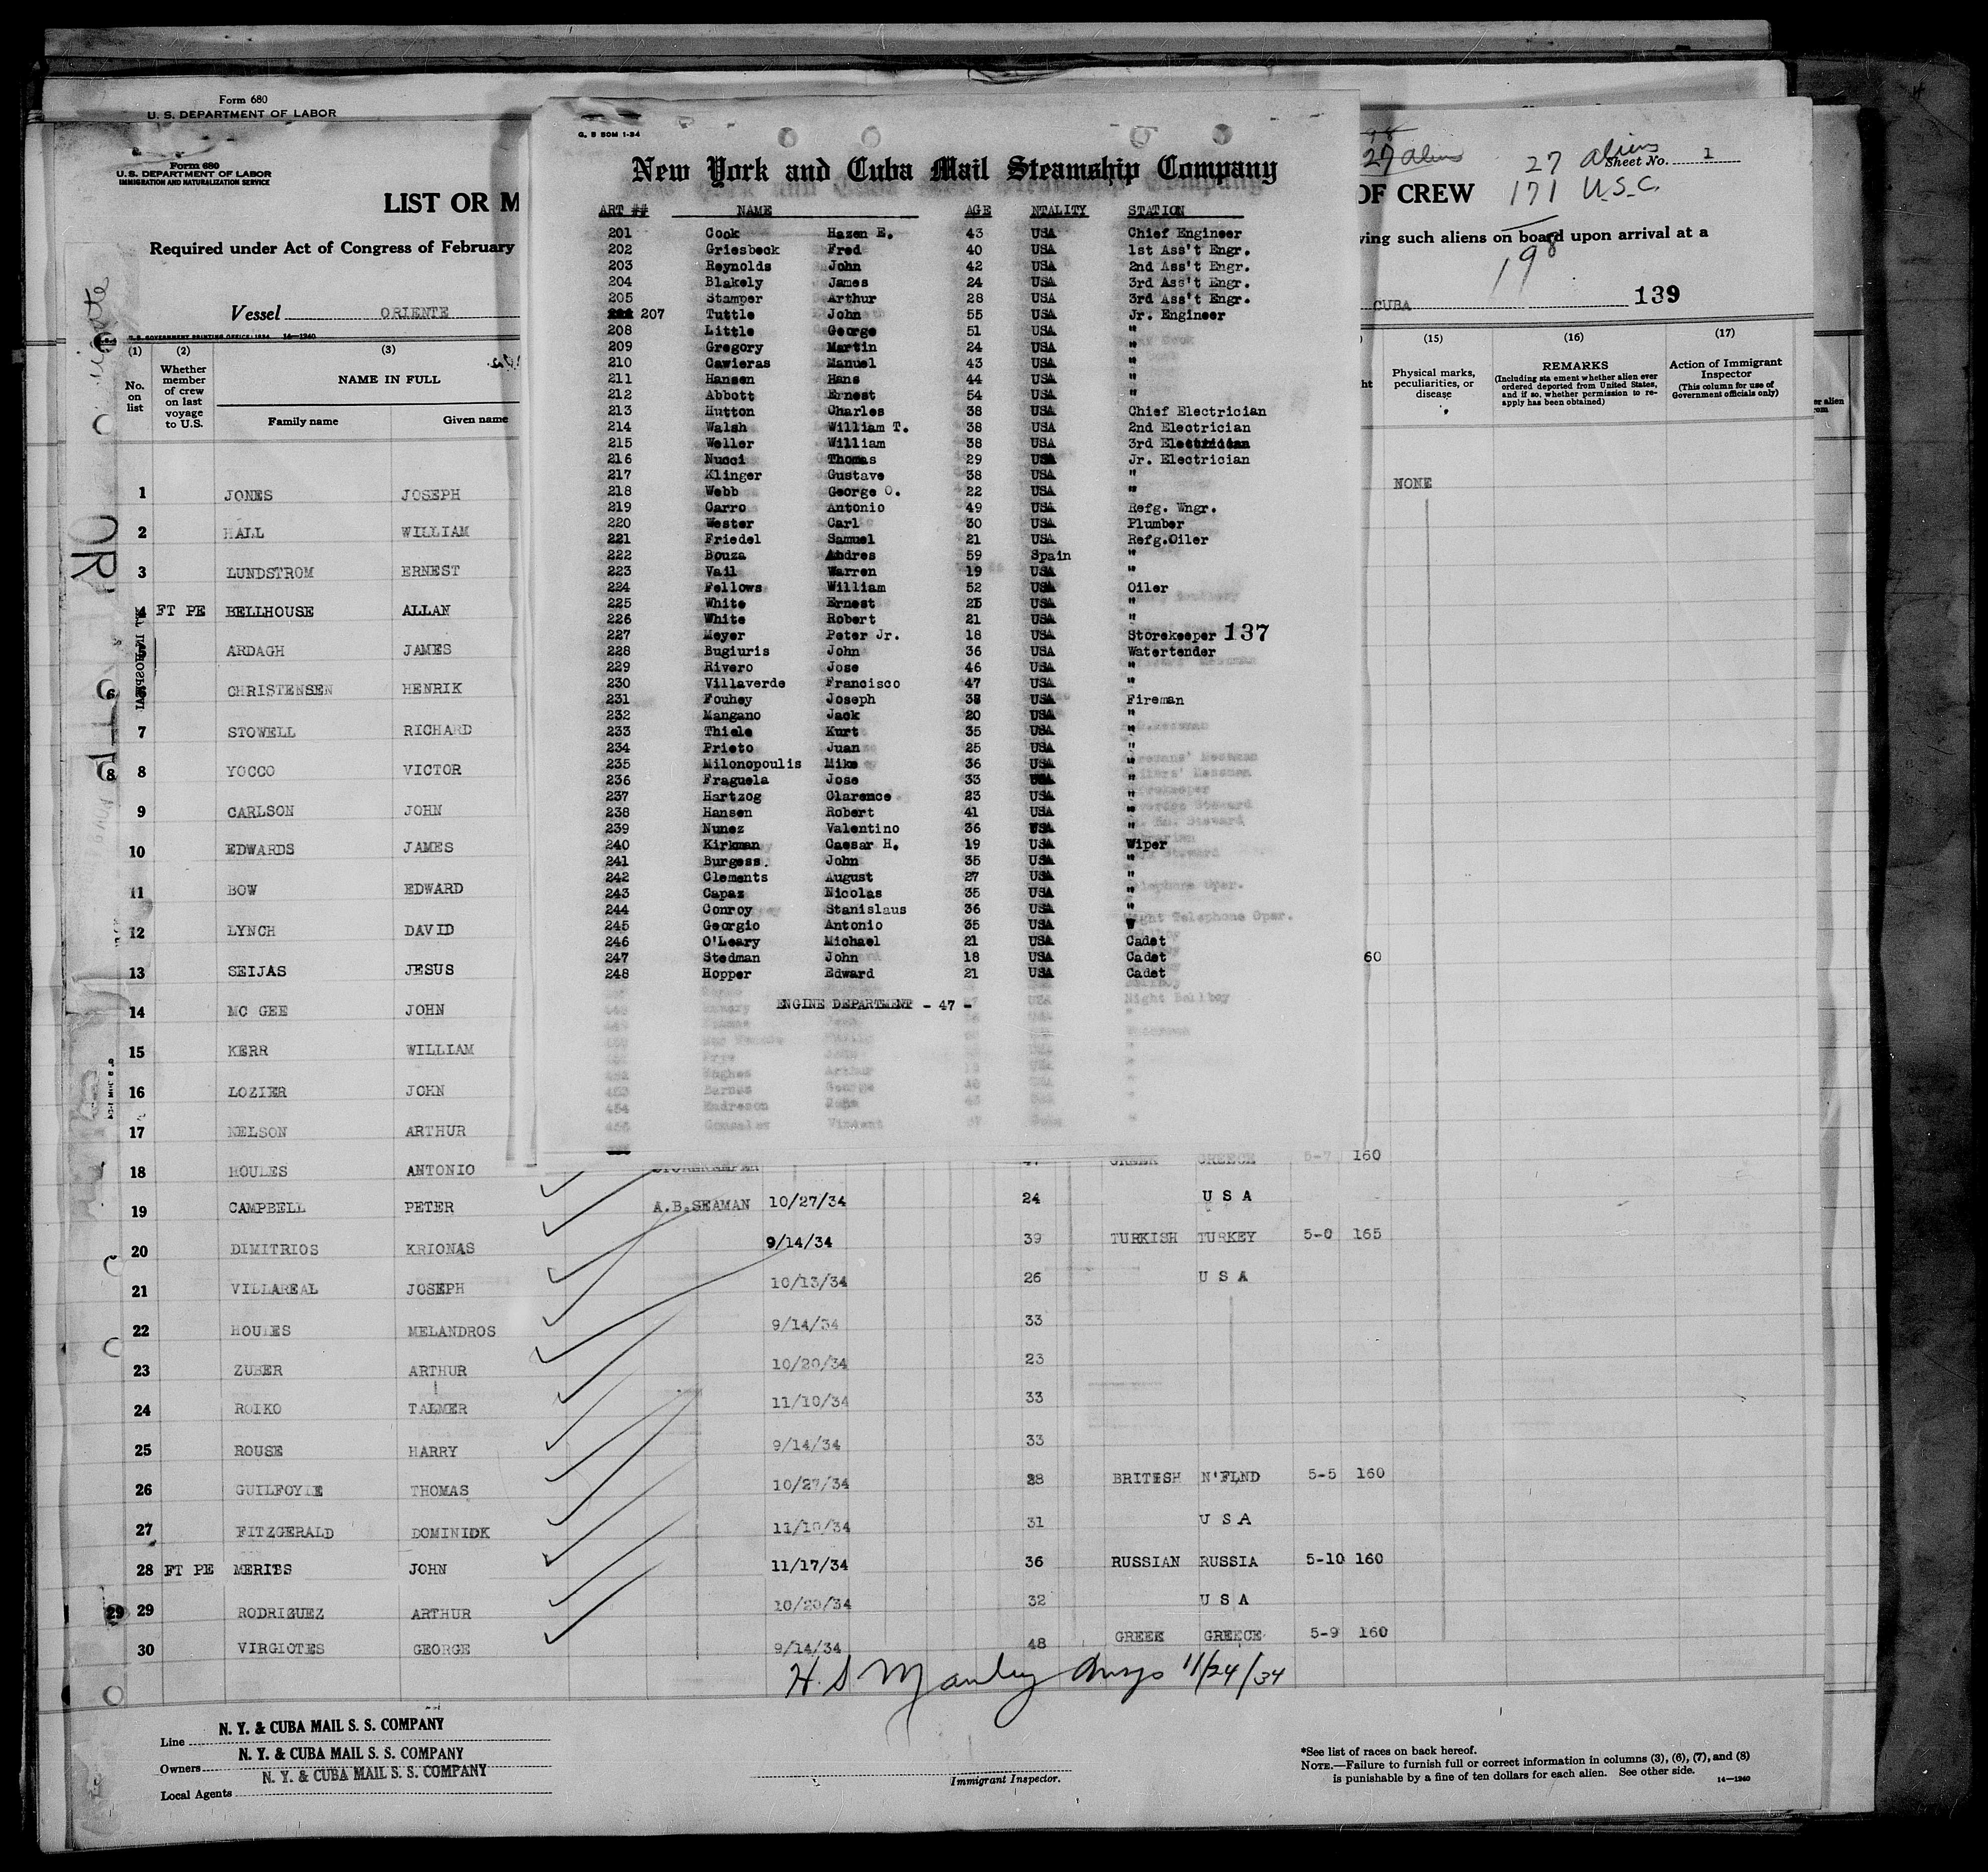 Form 680
U. S. DEPARTMENT OF LABOR
Form 680
U. S. DEPARTMENT OF LABOR
IMMIGRATION AND NATURALIZATION SERVICE
LIST OR M
Required under Act of Congress of February
Vessel ORIENTE
U. S. GOVERNMENT PRINTING OFFICE: 1934 14—1940
27 aliens
27 aliens
Sheet No. 1
OF CREW
171 U.S.C.
198
ving such aliens on board upon arrival at a
CUBA
139
(1) (2) (3) (15) (16) (17)
No. on list
Whether member of crew on last voyage to U.S.
NAME IN FULL
Family name Given name
Physical marks, peculiarities, or disease
REMARKS
(Including sta ement whether alien ever ordered deported from United States, and if so, whether permission to re-apply has been obtained)
Action of Immigrant Inspector
(This column for use of Government officials only)
G. S 50M 1-34
New York and Cuba Mail Steamship Company
ART ## NAME AGE NTALITY STATION
201 Cook Hazen E. 43 USA Chief Engineer
202 Griesbeck Fred 40 USA 1st Ass't Engr.
203 Reynolds John 42 USA 2nd Ass't Engr.
204 Blakely James 24 USA 3rd Ass't Engr.
205 Stamper Arthur 28 USA 3rd Ass't Engr.
207 Tuttle John 55 USA Jr. Engineer
208 Little George 51 USA "
209 Gregory Martin 24 USA "
210 Cawieras Manuel 43 USA "
211 Hansen Hans 44 USA "
212 Abbott Ernest 54 USA "
213 Hutton Charles 38 USA Chief Electrician
214 Walsh William T. 38 USA 2nd Electrician
215 Weller William 38 USA 3rd Electrician
216 Nucci Thomas 29 USA Jr. Electrician
217 Klinger Gustave 38 USA "
218 Webb George O. 22 USA "
219 Carro Antonio 49 USA Refg. Wngr.
220 Wester Carl 30 USA Plumber
221 Friedel Samuel 21 USA Refg.Oiler
222 Bouza Andres 59 Spain "
223 Vail Warren 19 USA "
224 Fellows William 52 USA Oiler
225 White Ernest 25 USA "
226 White Robert 21 USA "
227 Meyer Peter Jr. 18 USA Storekeeper 137
228 Bugiuris John 36 USA Watertender
229 Rivero Jose 46 USA "
230 Villaverde Francisco 47 USA "
231 Fouhey Joseph 38 USA Fireman
232 Mangano Jack 20 USA "
233 Thiele Kurt 35 USA "
234 Prieto Juan 25 USA "
235 Milonopoulis Mike 36 USA "
236 Fraguela Jose 33 USA "
237 Hartzog Clarence 23 USA "
238 Hansen Robert 41 USA "
239 Nunez Valentino 36 USA "
240 Kirkman Caesar H. 19 USA Wiper
241 Burgess. John 35 USA "
242 Clements August 27 USA "
243 Capaz Nicolas 35 USA "
244 Conroy Stanislaus 36 USA "
245 Georgio Antonio 35 USA "
246 O'Leary Michael 21 USA Cadet
247 Stedman John 18 USA Cadet
248 Hopper Edward 21 USA Cadet
ENGINE DEPARTMENT - 47 -
1 JONES JOSEPH NONE
2 HALL WILLIAM
3 LUNDSTROM ERNEST
4 FT PE BELLHOUSE ALLAN
ARDAGH JAMES
6 CHRISTENSEN HENRIK
7 STOWELL RICHARD
8 YOCCO VICTOR
9 CARLSON JOHN
10 EDWARDS JAMES
11 BOW EDWARD
12 LYNCH DAVID
13 SEIJAS JESUS 60
14 MC GEE JOHN
15 KERR WILLIAM
16 LOZIER JOHN
17 NELSON ARTHUR
18 HOULES ANTONIO STOREKEEPER 47 GREEK GREECE 5-7 160
19 CAMPBELL PETER A.B.SEAMAN 10/27/34 24 U S A
20 DIMITRIOS KRIONAS 9/14/34 39 TURKISH TURKEY 5-0 165
21 VILLAREAL JOSEPH 10/13/34 26 U S A
22 HOULES MELANDROS 9/14/34 33
23 ZUBER ARTHUR 10/20/34 23
24 ROIKO TALMER 11/10/34 33
25 ROUSE HARRY 9/14/34 33
26 GUILFOYLE THOMAS 10/27/34 28 BRITISH N'FLND 5-5 160
27 FITZGERALD DOMINIDK 11/10/34 31 U S A
28 FT PE MERITS JOHN 11/17/34 36 RUSSIAN RUSSIA 5-10 160
29 29 RODRIGUEZ ARTHUR 10/20/34 32 U S A
30 VIRGIOTES GEORGE 9/14/34 48 GREEK GREECE 5-9 160
H. S Manley Insp 11/24/34
Line N. Y. & CUBA MAIL S. S. COMPANY
Owners N. Y. & CUBA MAIL S. S. COMPANY
Local Agents N. Y. & CUBA MAIL S. S. COMPANY
Immigrant Inspector.
*See list of races on back hereof.
NOTE.—Failure to furnish full or correct information in columns (3), (6), (7), and (8)
is punishable by a fine of ten dollars for each alien. See other side.
14—1940